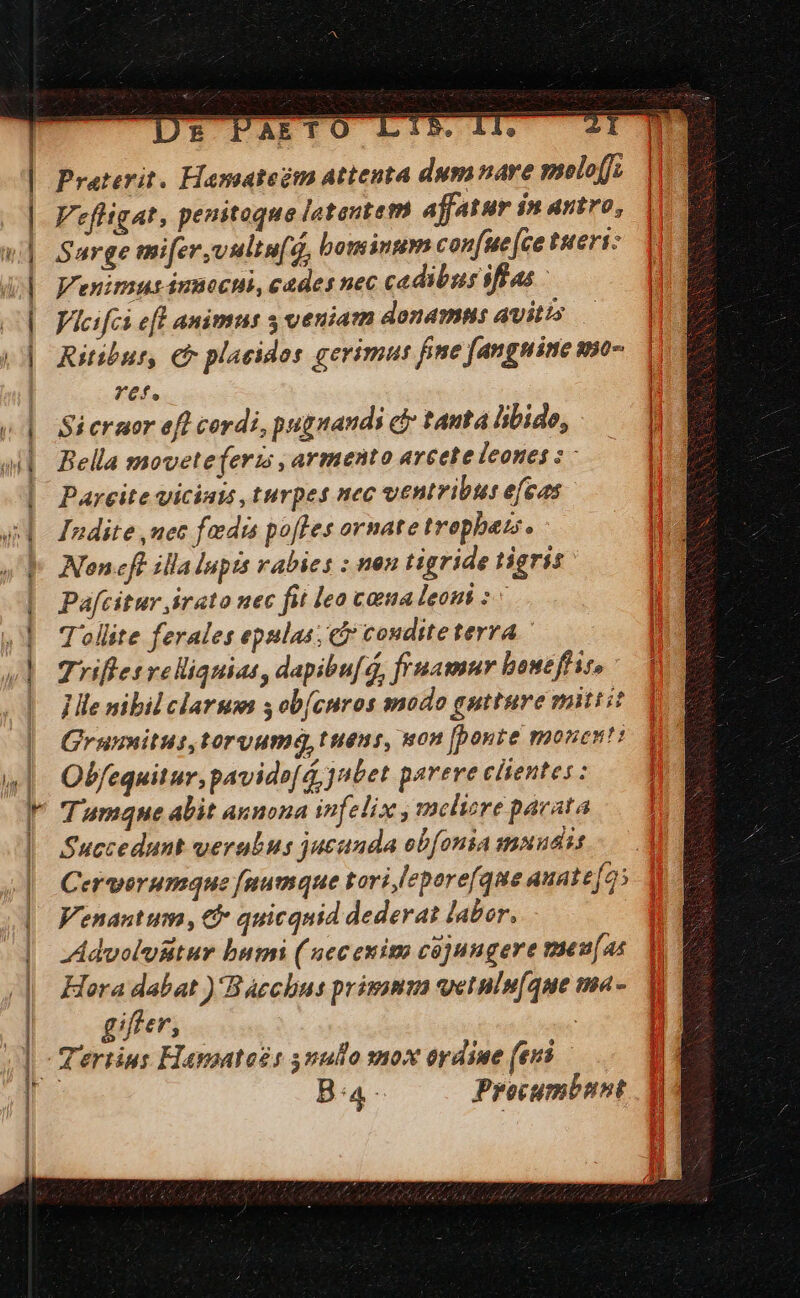 DE PAETO LIB. II. 21
Præterit. Hamateëm attenta dum nare molossi
Vestigat, penitoque latentem affatur in antro,
Surge miser, vultusq́, hominum consuesce tueri:
Venimus innocui, cades nec cadibus istas
Vlcisci est animus; veniam donamus avitis
Ritibus, & placidos gerimus sine sanguine mo-
res.
Si cruor est cordi, pugnandi & tanta libido,
Bella movete feris, armento arcete leones:
Parcite vicinis, turpes nec ventribus escas
Indite, nec fœdis postes ornate trophæis.
Non est illa lupis rabies: non tigride tigris
Pascitur, irato nec fit leo cœna leoni:
Tollite ferales epulas, & condite terra
Tristes relliquias, dapibusq́, fruamur honestis.
Ille nihil clarum; obscuros modo gutture mittit
Grunnitus, torvumq́, tuens, non sponte monenti
Obsequitur, pavidosq́, jubet parere clientes:
Tumque abit annona infelix, meliore parata
Succedunt verubus jucunda obsonia mundis
Cervorumque suumque tori, leporesque anatesq;
Venantum, & quicquid dederat labor.
Advolvũtur humi (nec enim cõjungere mensas
Hora dabat) Bacchus primum vetulusque ma-
gister,
Tertius Hamateës; nullo mox ordine seni
B 4 Procumbunt